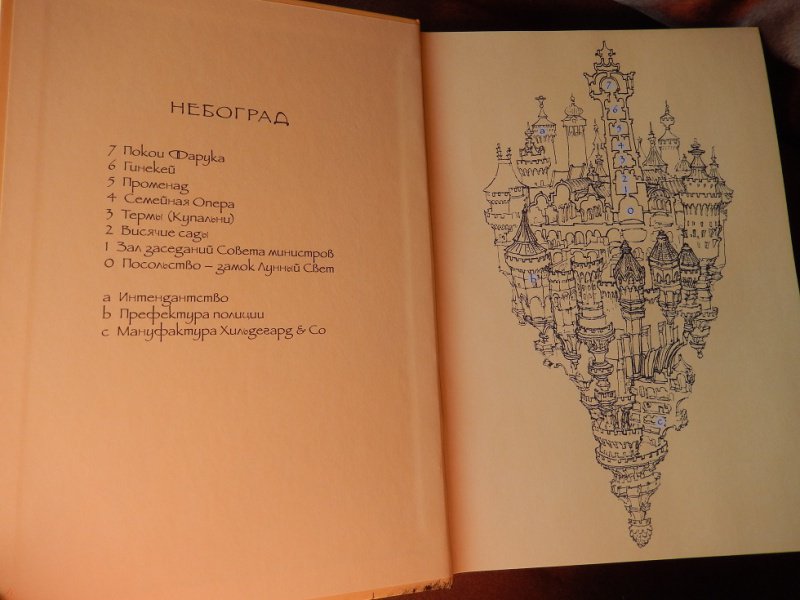 НЕБОГРАД
7 Покои Фарука
6 Гинекей
5 Променад
4 Семейная Опера
3 Термы (Купальни)
2 Висячие сады
1 Зал заседаний Совета министров
0 Посольство – замок Лунный Свет
a Интендантство
b Префектура полиции
c Мануфактура Хильдегард & Co
7
6
a
5
4
3
2
1
0
b
c